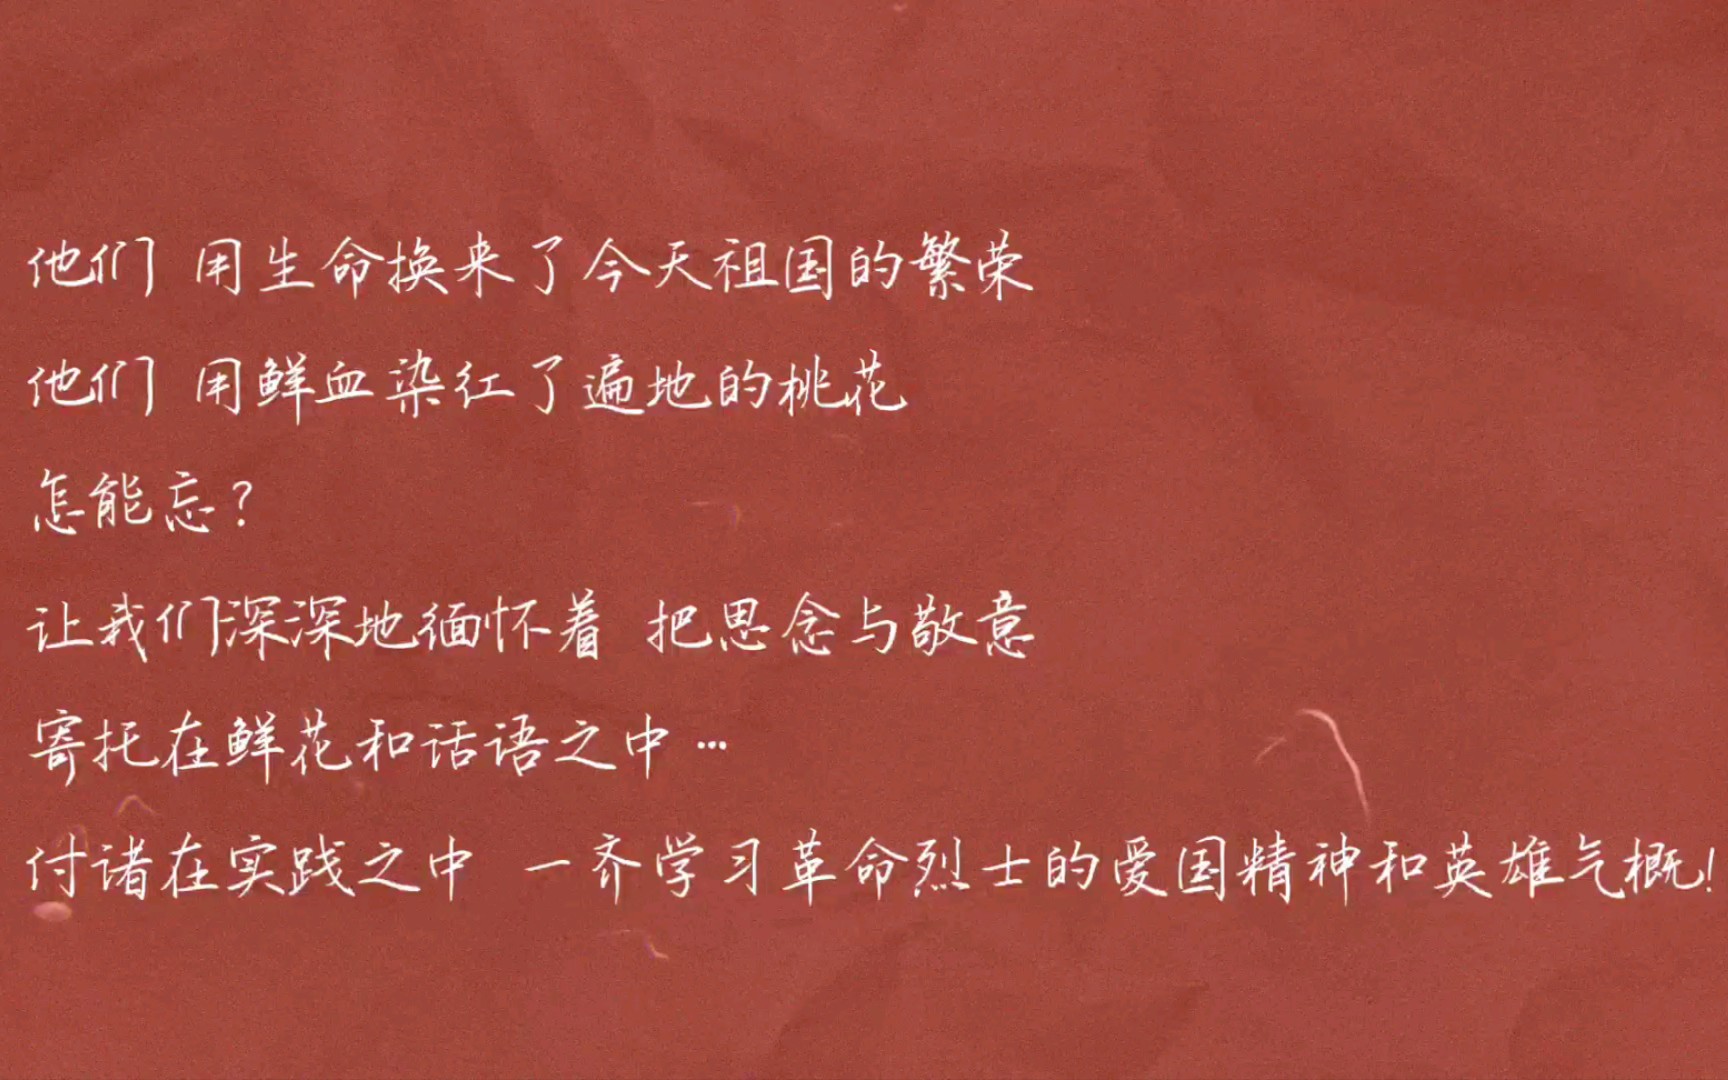 他们 用生命换来了今天祖国的繁荣
他们 用鲜血染红了遍地的桃花
怎能忘?
让我们深深地缅怀着 把思念与敬意
寄托在鲜花和话语之中…
付诸在实践之中 一齐学习革命烈士的爱国精神和英雄气概!